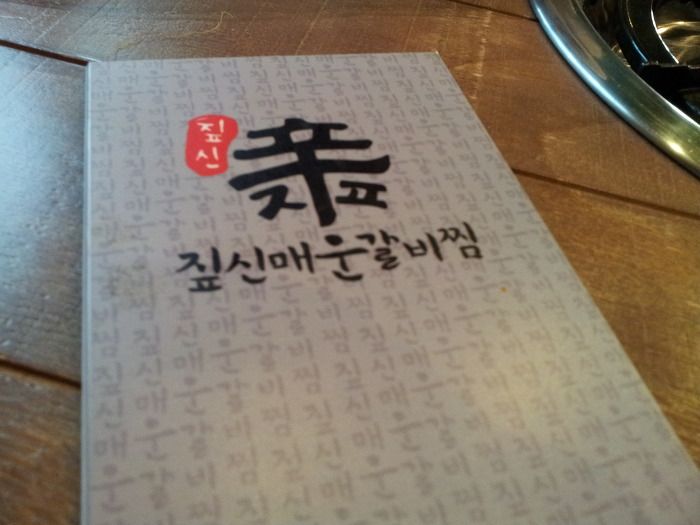 짚신
짚신매운갈비찜